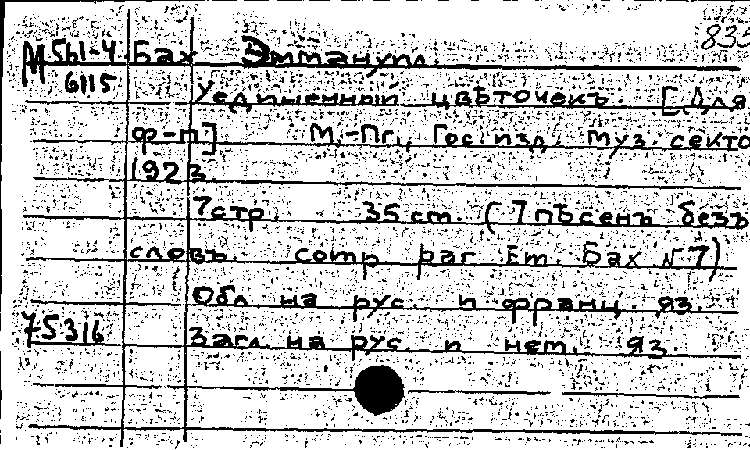 835
М 561-4 Бах Эммануил.
6115
Уединенный цвѣточекъ. [Для
ф-п] М.-Пг., Гос. изд. Муз. секто
1923.
7 стр. 35 см. (7 пѣсенъ безъ
словъ. comp par Em. Бах №7)
Обл на рус. и франц. яз.
75316 Загл. на рус. и нем. яз.